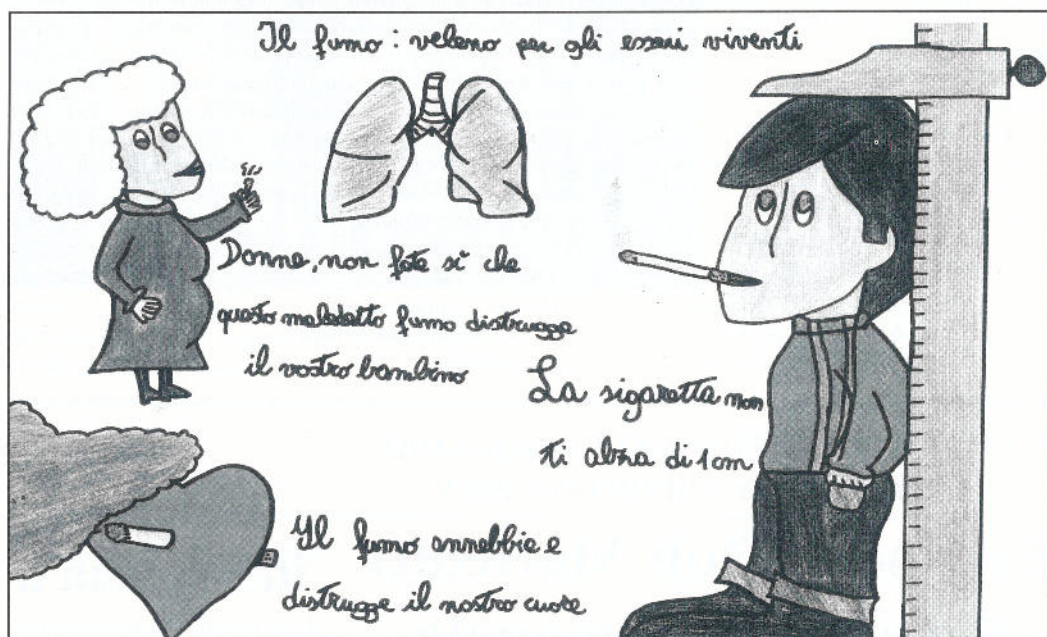 Il fumo : veleno per gli esseri viventi
Donne, non fate sì che
questo maledetto fumo distrugga
il vostro bambino
La sigaretta non
ti alza di 1 cm
Il fumo annebbia e
distrugge il nostro cuore